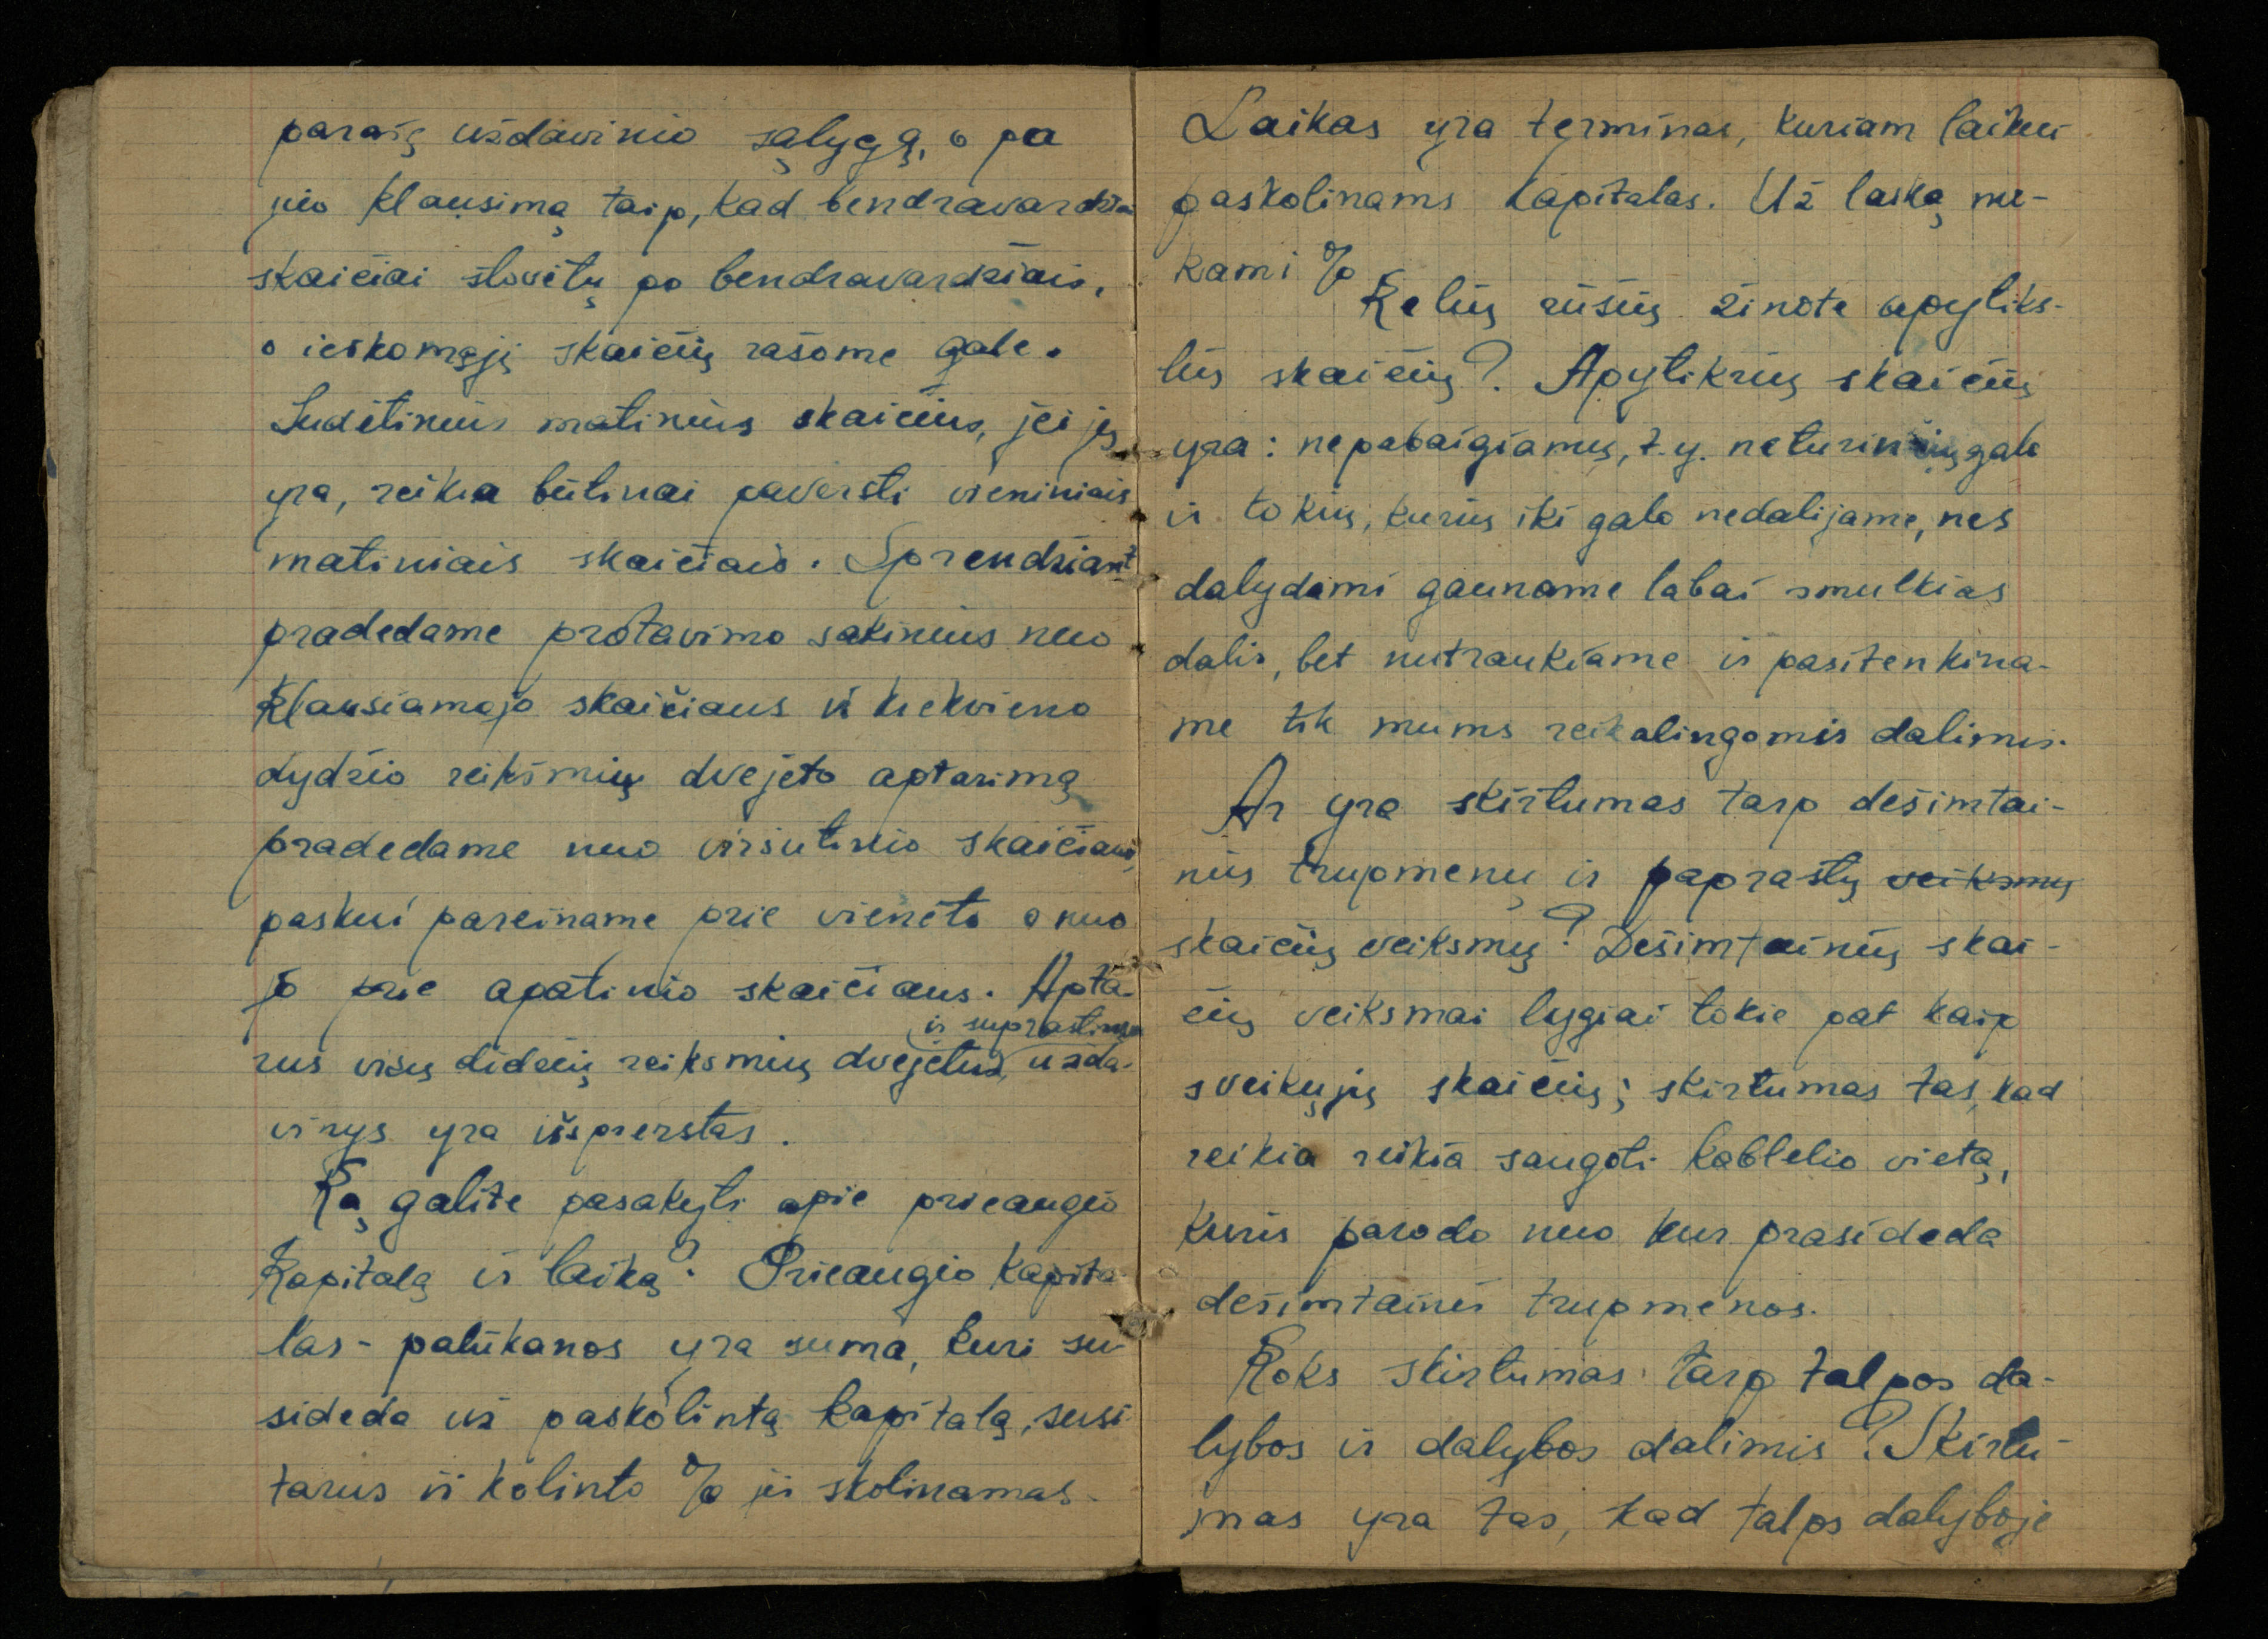 parašę uždavinio sąlygą, o pa
juo klausimą taip, kad bendravardžiai
skaičiai stovėtų po bendravardžiais,
o ieškomąjį skaičių rašome gale.
Sudėtinius matinius skaičius, jei jų
yra, reikia būtinai paversti vieniniais
matiniais skaičiais. Sprendžiant
pradedame protavimo sakinius nuo
klausiamojo skaičiaus ir kiekvieno
dydžio reikšmių dvejeto aptarimą
pradedame nuo viršutinio skaičiaus,
paskui pareiname prie vieneto o nuo
jo prie apatinio skaičiaus. Apta-
ir suprastinus
rus visų didžių reikšmių dvejetus, užda-
vinys yra išsprerstas.
Ką galite pasakyti apie prieaugio
kapitalą ir laiką? Prieaugio kapita-
las - palūkanos yra suma, kuri su-
sideda už paskolintą kapitalą, susi-
tarus iš kolinto % jis skolinamas.
Laikas yra terminas, kuriam laikui
paskolinams kapitalas. Už laiką mo-
kami %
Kelių rūšių žinote apytiks-
lių skaičių? Apytikrių skaičių
yra: nepabaigiamų, t.y. neturinčių galo
ir tokių, kurių iki galo nedalijame, nes
dalydami gauname labai smulkias
dalis, bet nutraukiame ir pasitenkina-
me tik mums reikalingomis dalimis.
Ar yra skirtumas tarp dešimtai-
nių trupmenų ir paprastų veiksmų
skaičių veiksmų? Dešimtainių skai-
čių veiksmai lygiai tokie pat kaip
sveikųjų skaičių; skirtumas tas, kad
reikia reikia saugoti kablelio vietą,
kuris parodo nuo kur prasideda
dešimtainės trupmenos.
Koks skirtumas tarp talpos da-
lybos ir dalybos dalimis? Skirtu-
mas yra tas, kad talpos dalyboje